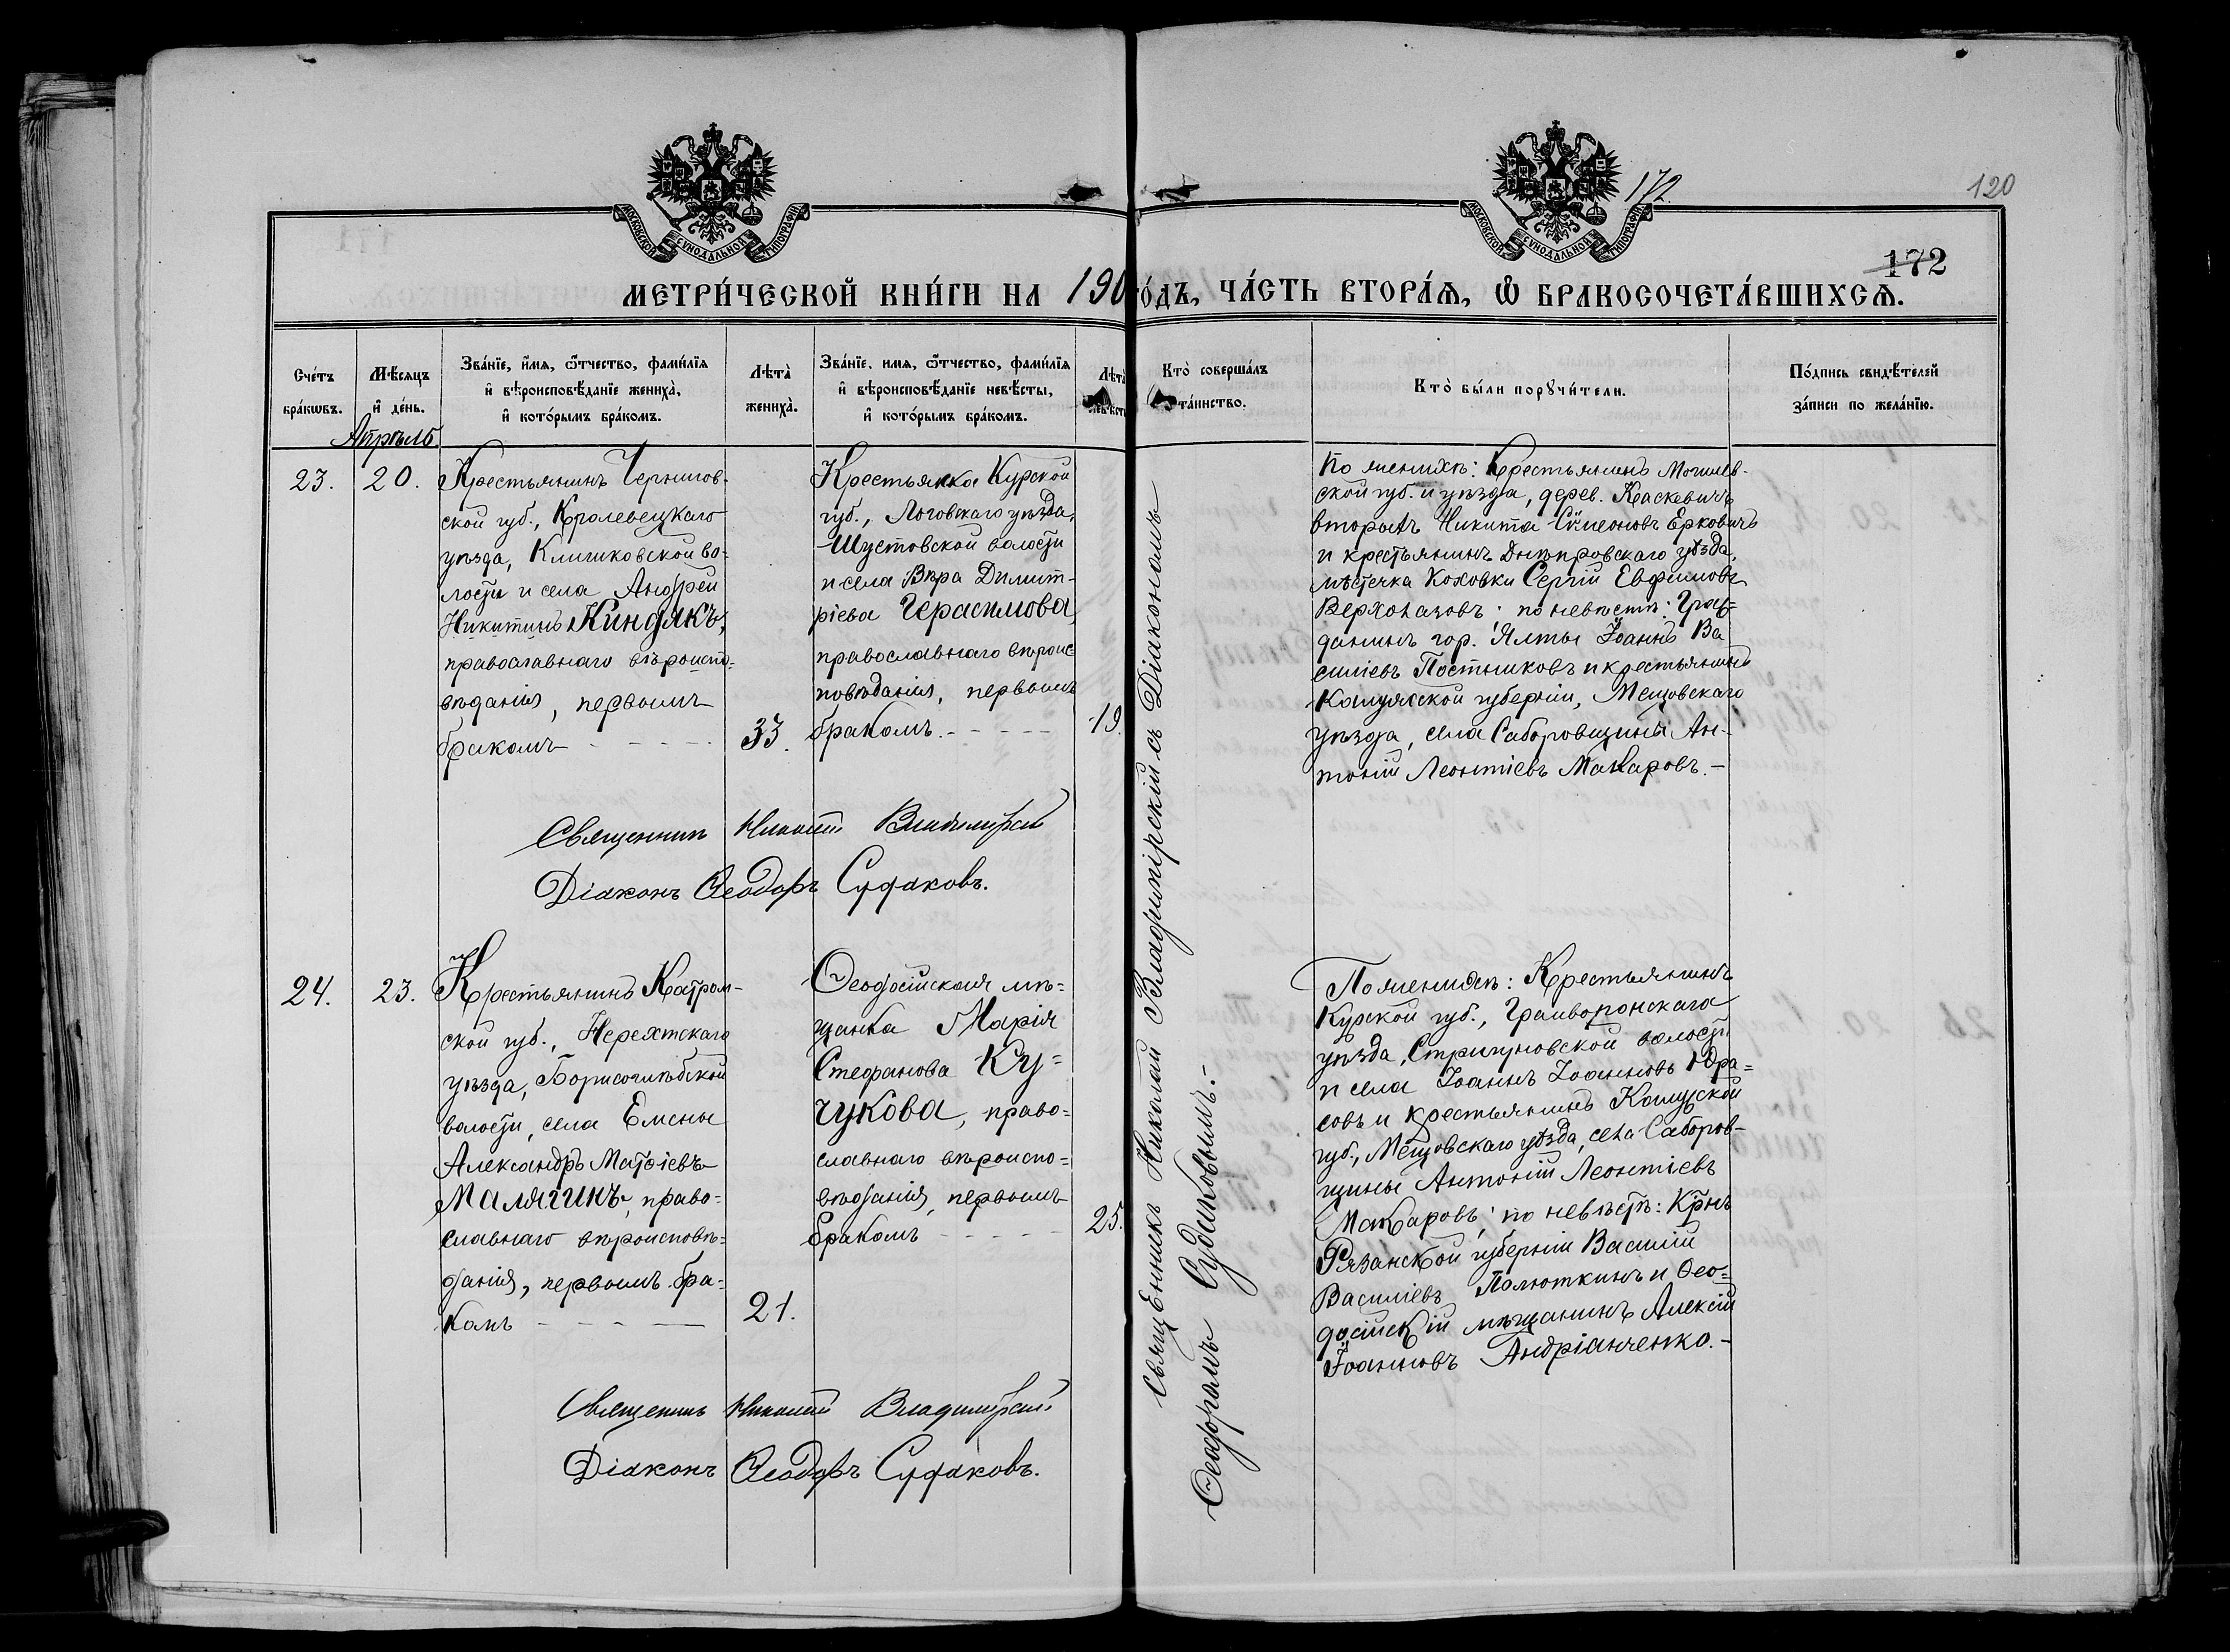 172
120
МОСКОВСКОЙ СѴНОДАЛЬНОЙ ТИПОГРАФІИ
МОСКОВСКОЙ СѴНОДАЛЬНОЙ ТИПОГРАФІИ
172
МЕТРИ́ЧЕСКОЙ КНИ́ГИ НА 190
О́ДЪ, ЧА́СТЬ ВТОРА́Я, Ѡ҆ БРАКОСОЧЕТА́ВШИХСЯ.
Сче́тъ
бра́кѡвъ.
Мѣ́сяцъ
и҆ де́нь.
Зва́нїе, и҆́мя, ѻ҆́тчество, фами́лїя
и҆ вѣроисповѣ́данїе жениха̀,
и҆ кото́рымъ бра́комъ.
Лѣта̀
жениха̀.
Зва́нїе, имя, ѻ҆́тчество, фами́лїя
и҆ вѣроисповѣ́данїе невѣ́сты,
и҆ кото́рымъ бра́комъ.
Лѣта̀
невѣсты
Кто̀ соверша́лъ
та́инство.
Кто̀ бы́ли порꙋчи́тели.
По́дпись свидѣ́телей
за́писи по жела́нїю.
Апрѣль
23.
20.
Крестьянинъ Чернигов-
ской губ., Кролевецкаго
уѣзда, Клишковской во-
лости и села Андрей
Никитинъ Киндякъ,
православнаго вѣроиспо-
вѣданія, первымъ
бракомъ
33.
Крестьянка Курской
губ., Льговскаго уѣзда,
Шустовской волости
и села Вѣра Димит-
ріева Герасимова,
православнаго вѣроис
повѣданія, первымъ
бракомъ.
19.
По женихѣ: Крестьянинъ Могилев-
ской губ. и уѣзда, дерев.
вторыхъ Никита Сѵмеоновъ Ерковичъ
и крестьянинъ Днѣпровскаго уѣзда,
мѣстечка Коховки Сергій Евфимовъ
Верхолазовъ; по невѣстѣ: Граж-
данинъ гор. Ялты Іоаннъ Ва
силіевъ Постниковъ и крестьянинъ
Калужской губерніи, Мещовскаго
уѣзда, села Саборовщины Ан-
тоній Леонтіевъ Макаровъ.
Священникъ Николай Владимірскій
Діаконъ Ѳеодоръ Судаковъ.
24.
23.
Крестьянинъ Костром-
ской губ., Нерехтскаго
уѣзда, Борисоглѣбской
волости, села Емсны
Александръ Матѳіевъ
Малягинъ, право-
славнаго вѣроисповѣ-
данія, первымъ бра-
комъ
21.
Ѳеодосійская мѣ-
щанка Марія
Стефанова Ку-
чукова, право-
славнаго вѣроиспо-
вѣданія, первымъ
бракомъ
25.
По женихѣ: Крестьянинъ
Курской губ., Грайворонскаго
уѣзда, Стригуновской волости
и села Іоаннъ Іоанновъ Юра-
совъ и крестьянинъ Калужской
губ., Мещовскаго уѣзда, села Саборов-
щины Антоній Леонтіевъ
Макаровъ; по невѣстѣ: Кр̃нъ
Рязанской губерніи Василій
Василіевъ Полюткинъ и Ѳео-
досійскій мѣщанинъ Алексій
Іоанновъ Андріанченко.
Священникъ Николай Владимірскій
Діаконъ Ѳеодоръ Судаковъ.
Священникъ Николай Владимірскій съ Діакономъ
Ѳеодоромъ Судаковымъ.